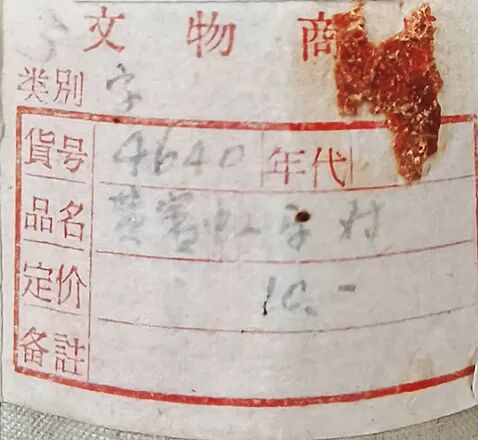 文物商
类别 字
貨号 4640 年代
品名 黄宾虹字对
定价 10.-
备註